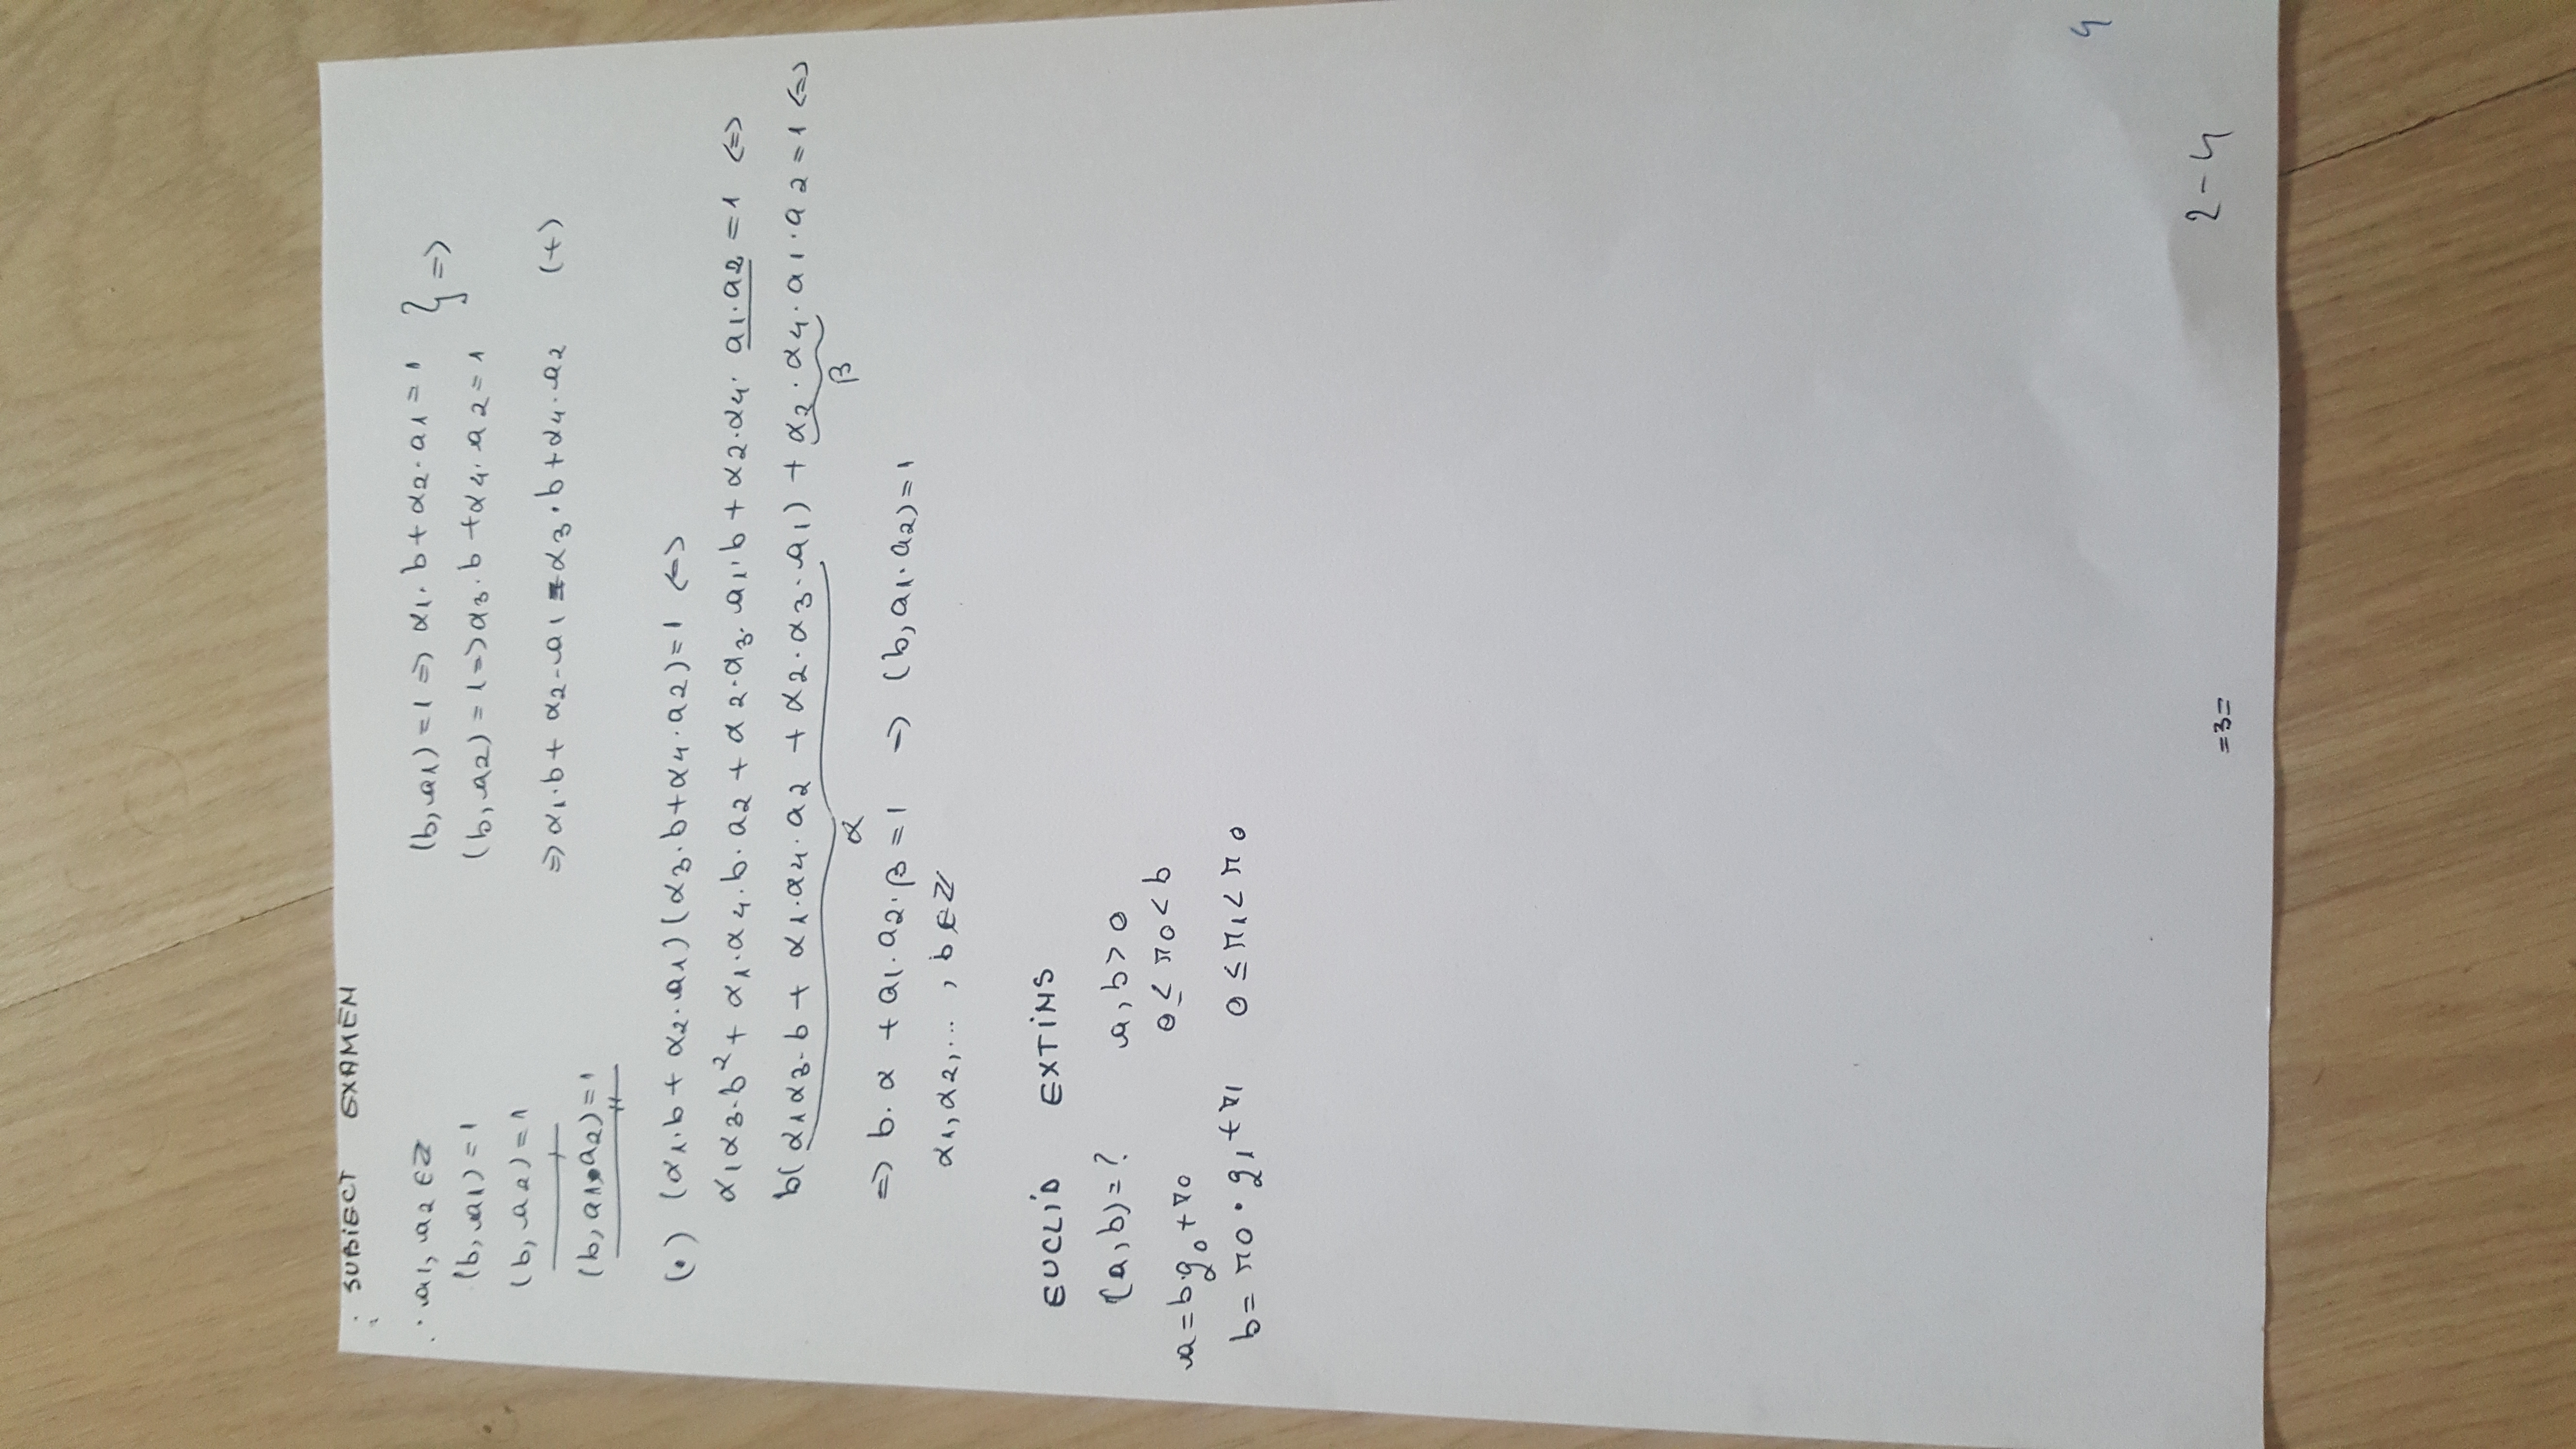 SUBIECT EXAMEN
a1, a2 ∈ Z
(b, a1) = 1
(b, a2) = 1
(b, a1·a2) = 1
(b, a1) = 1 => α1·b + α2·a1 = 1 } =>
(b, a2) = 1 => α3·b + α4·a2 = 1
=> α1·b + α2·a1 = α3·b + α4·a2 (+)
(·) (α1·b + α2·a1)(α3·b + α4·a2) = 1 <=>
α1α3·b² + α1·α4·b·a2 + α2·α3·a1·b + α2·α4·a1·a2 = 1 <=>
b(α1α3·b + α1·α4·a2 + α2·α3·a1) + α2·α4·a1·a2 = 1 <=>
α β
=> b·α + a1·a2·β = 1 => (b, a1·a2) = 1
α1, α2, ... , b ∈ Z
EUCLID EXTINS
(a, b) = ? a, b > 0
a = b·q0 + r0 0 ≤ r0 < b
b = r0·q1 + r1 0 ≤ r1 < r0
4
2-4
=3=